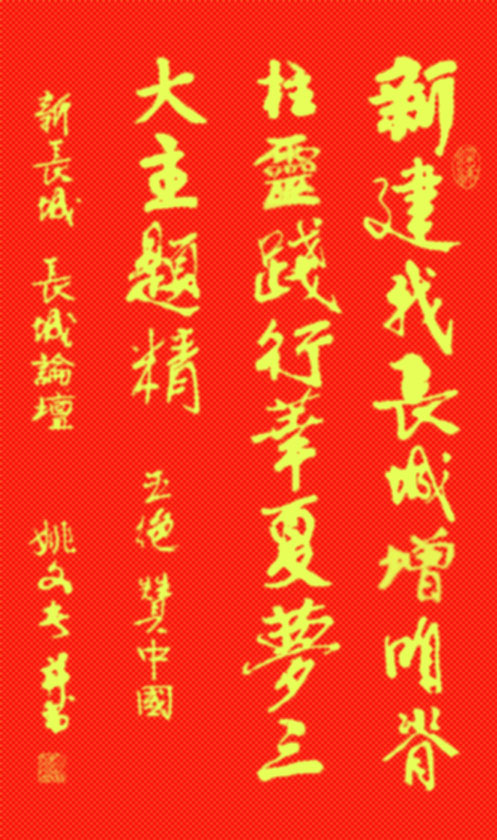 新建我長城增明脊
柱靈踐行華夏夢三
大主題精 五絕 贊中國
新長城 長城論壇 姚文